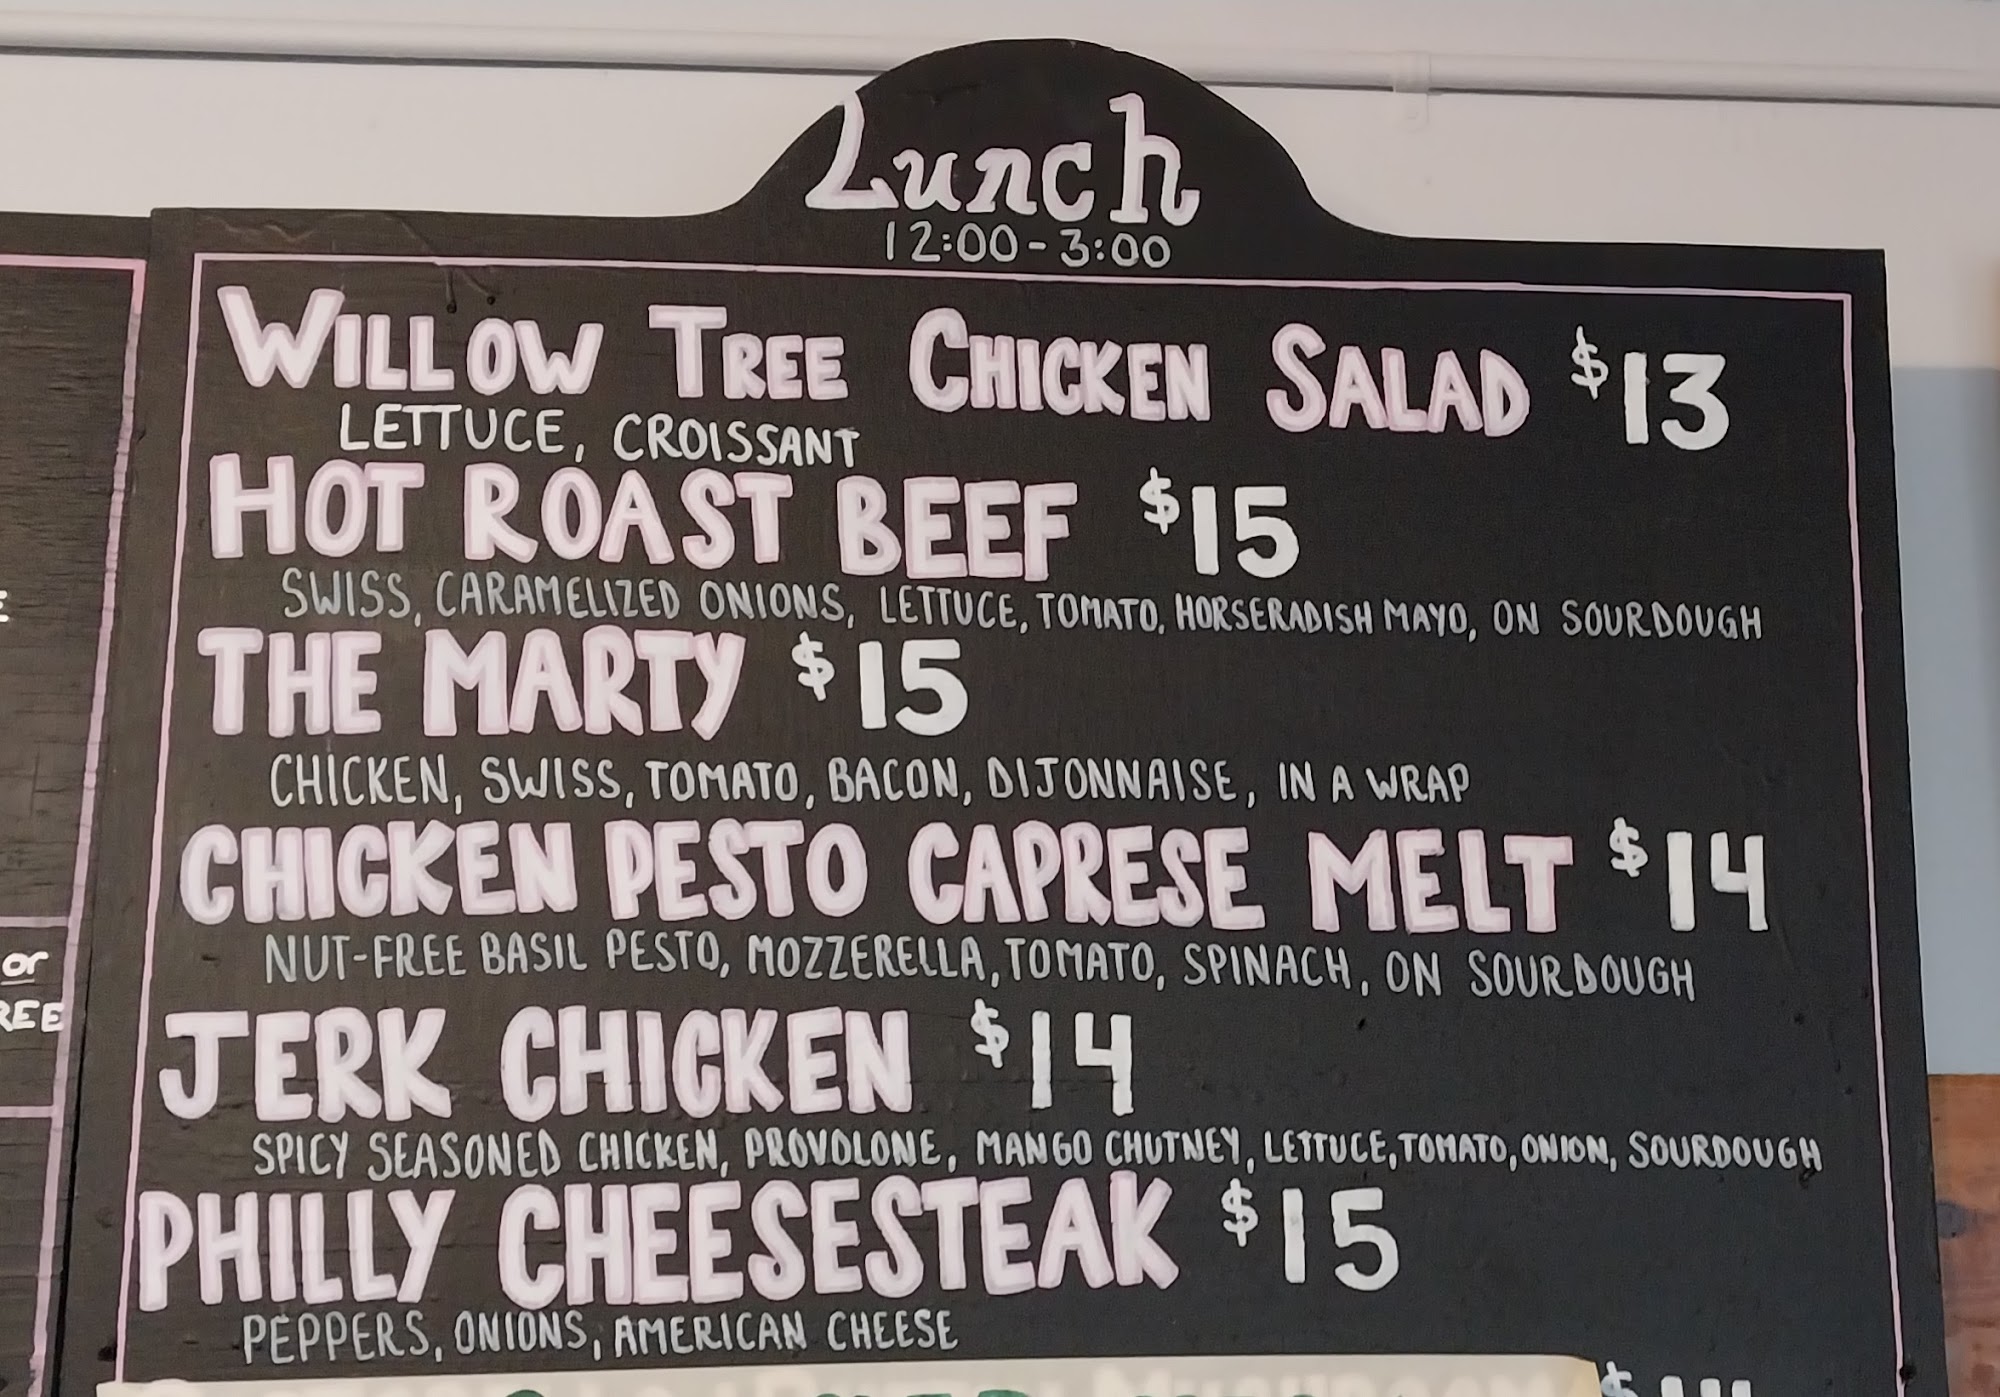 Lunch
12:00-3:00
WILLOW TREE CHICKEN SALAD $13
LETTUCE, CROISSANT
HOT ROAST BEEF $15
SWISS, CARAMELIZED ONIONS, LETTUCE, TOMATO, HORSERADISH MAYO, ON SOURDOUGH
THE MARTY $15
CHICKEN, SWISS, TOMATO, BACON, DIJONNAISE, IN A WRAP
CHICKEN PESTO CAPRESE MELT $14
NUT-FREE BASIL PESTO, MOZZERELLA, TOMATO, SPINACH, ON SOURDOUGH
or
JERK CHICKEN $14
SPICY SEASONED CHICKEN, PROVOLONE, MANGO CHUTNEY, LETTUCE, TOMATO, ONION, SOURDOUGH
PHILLY CHEESESTEAK $15
PEPPERS, ONIONS, AMERICAN CHEESE